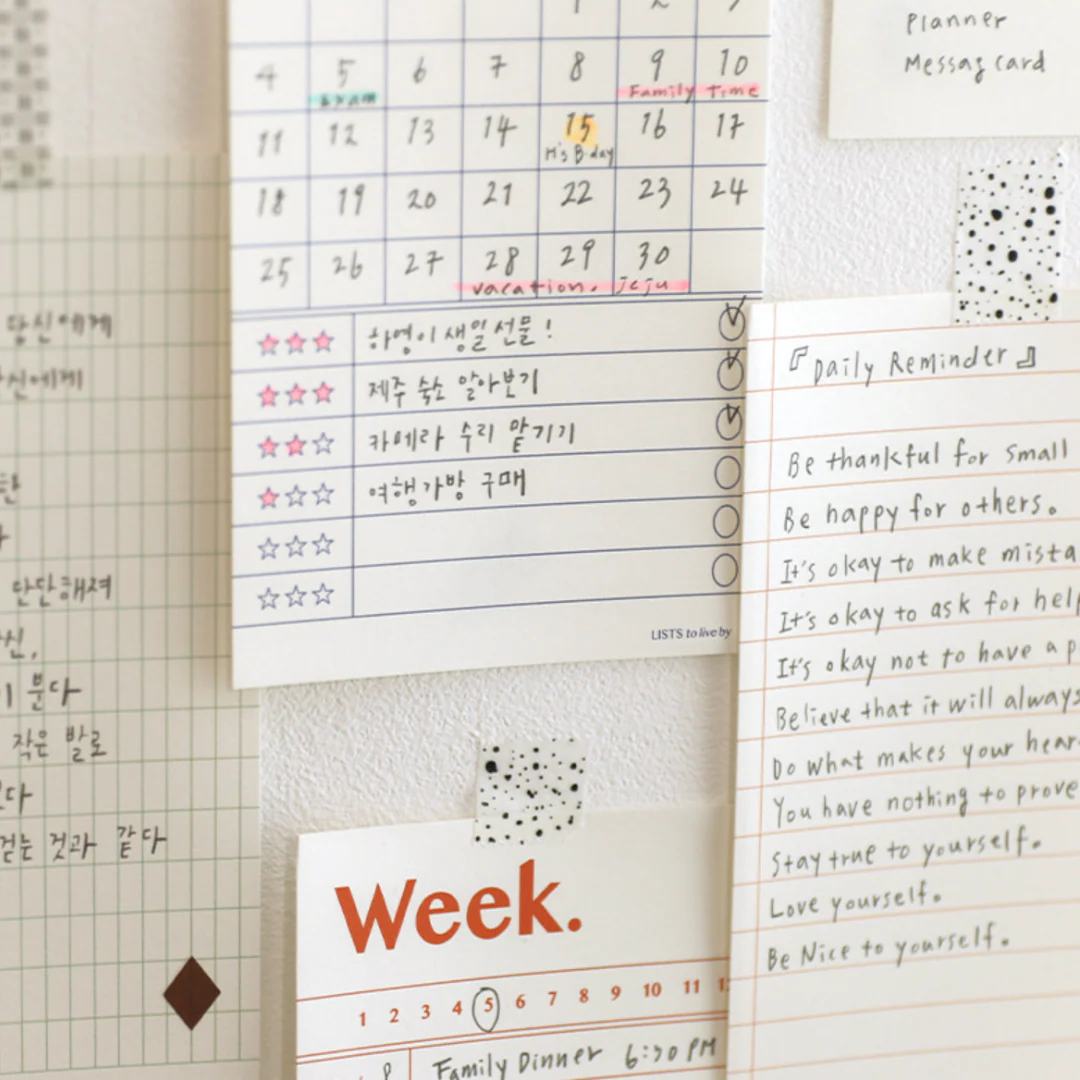 Planner
Messag card
4 5 6 7 8 9 10
Exam Family Time
11 12 13 14 15 16 17
H's B-day
18 19 20 21 22 23 24
25 26 27 28 29 30
vacation. jeju
하영이 생일선물!
제주 숙소 알아보기
카메라 수리 맡기기
여행가방 구매
LISTS to live by
당신에게
단단해져
분다
작은 발로
걷는 것과 같다
『Daily Reminder』
Be thankful for small
Be happy for others.
It's okay to make
It's okay to ask for
It's okay not to have a
Believe that it will always
Do what makes your
You have nothing to prove
Stay true to yourself.
Love yourself.
Be Nice to yourself.
Week.
1 2 3 4 5 6 7 8 9 10 11
Family Dinner 6:30 PM